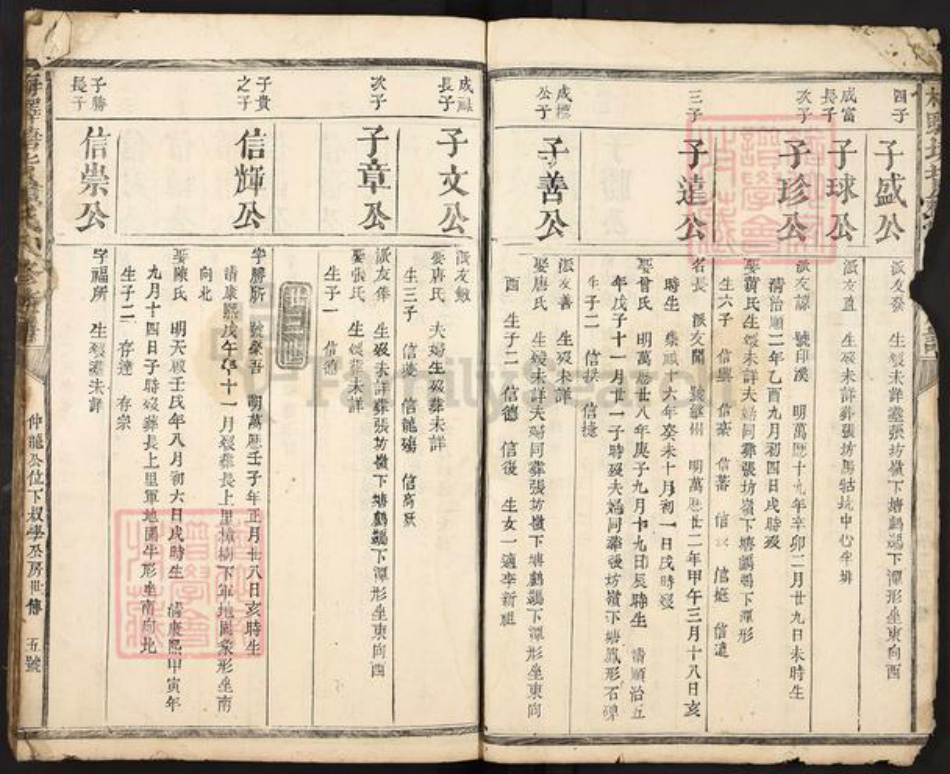 四子
子盛公
派友發 生歿未詳葬張坊嶺下塘鸕鶿下潭形坐東向酉
成富長子
子球公
派友直 生歿未詳葬張坊馬牯坑中心半排
次子
子珍公
派友諒 號印溪 明萬曆十九年辛卯二月廿九日未時生
清治順二年乙酉九月初四日戌時歿
娶黃氏生歿未詳夫婦同葬張坊嶺下塘鸕鶿下潭形
生六子 信興 信豪 信蕃 信 信庭 信遠
三子
子達公
名長 派友聞 號敏州 明萬曆廿二年甲午三月十八日亥
時生 崇禎十六年癸未十月初一日戌時歿
娶曾氏 明萬曆廿八年庚子九月十九日辰時生 清順治五
年戊子十一月廿一子時歿夫婦同葬張坊嶺下塘鳳形石碑
生子二 信拱 信捷
成標公子
子善公
派友善 生歿未詳
娶唐氏 生歿未詳夫婦同葬張坊嶺下塘鸕鶿下潭形坐東向
酉 生子二 信德 信後 生女一適李新祖
成祿長子
子文公
派友敏
娶唐氏 夫婦生歿葬未詳
生三子 信 信龍 信
次子
子章公
派友俸 生歿未詳葬張坊嶺下塘鸕鶿下潭形坐東向酉
娶張氏 生歿葬未詳
生子一 信
子貴之子
信輝公
字勝所 號榮吾 明萬曆壬子年正月廿八日亥時生
清康熙戊午年十一月歿葬長上里樟樹下軍地圖象形坐南
向北
娶陳氏 明天啟壬戌年八月初六日戌時生 清康熙甲寅年
九月十四日子時歿葬長上里軍地圖牛形坐南向北
生子二 存達 存宗
子勝長子
信崇公
字福所 生歿葬未詳
仲龍公位下叔學公房世傳 五號